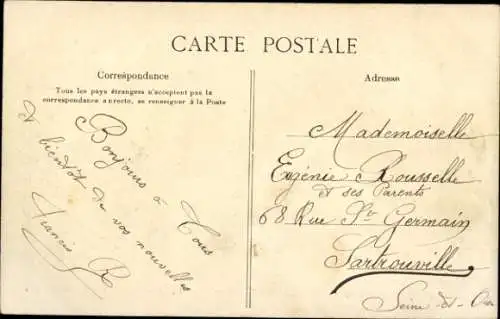 CARTE POSTALE
Correspondance
Tous les pays étrangers n'acceptent pas la
correspondance au recto, se renseigner à la Poste
Bonjours à Tous
et bientôt de vos nouvelles
Francis R
Adresse
Mademoiselle
Eugénie Rousselle
et ses Parents
68 Rue St Germain
Sartrouville
Seine-et-Oise